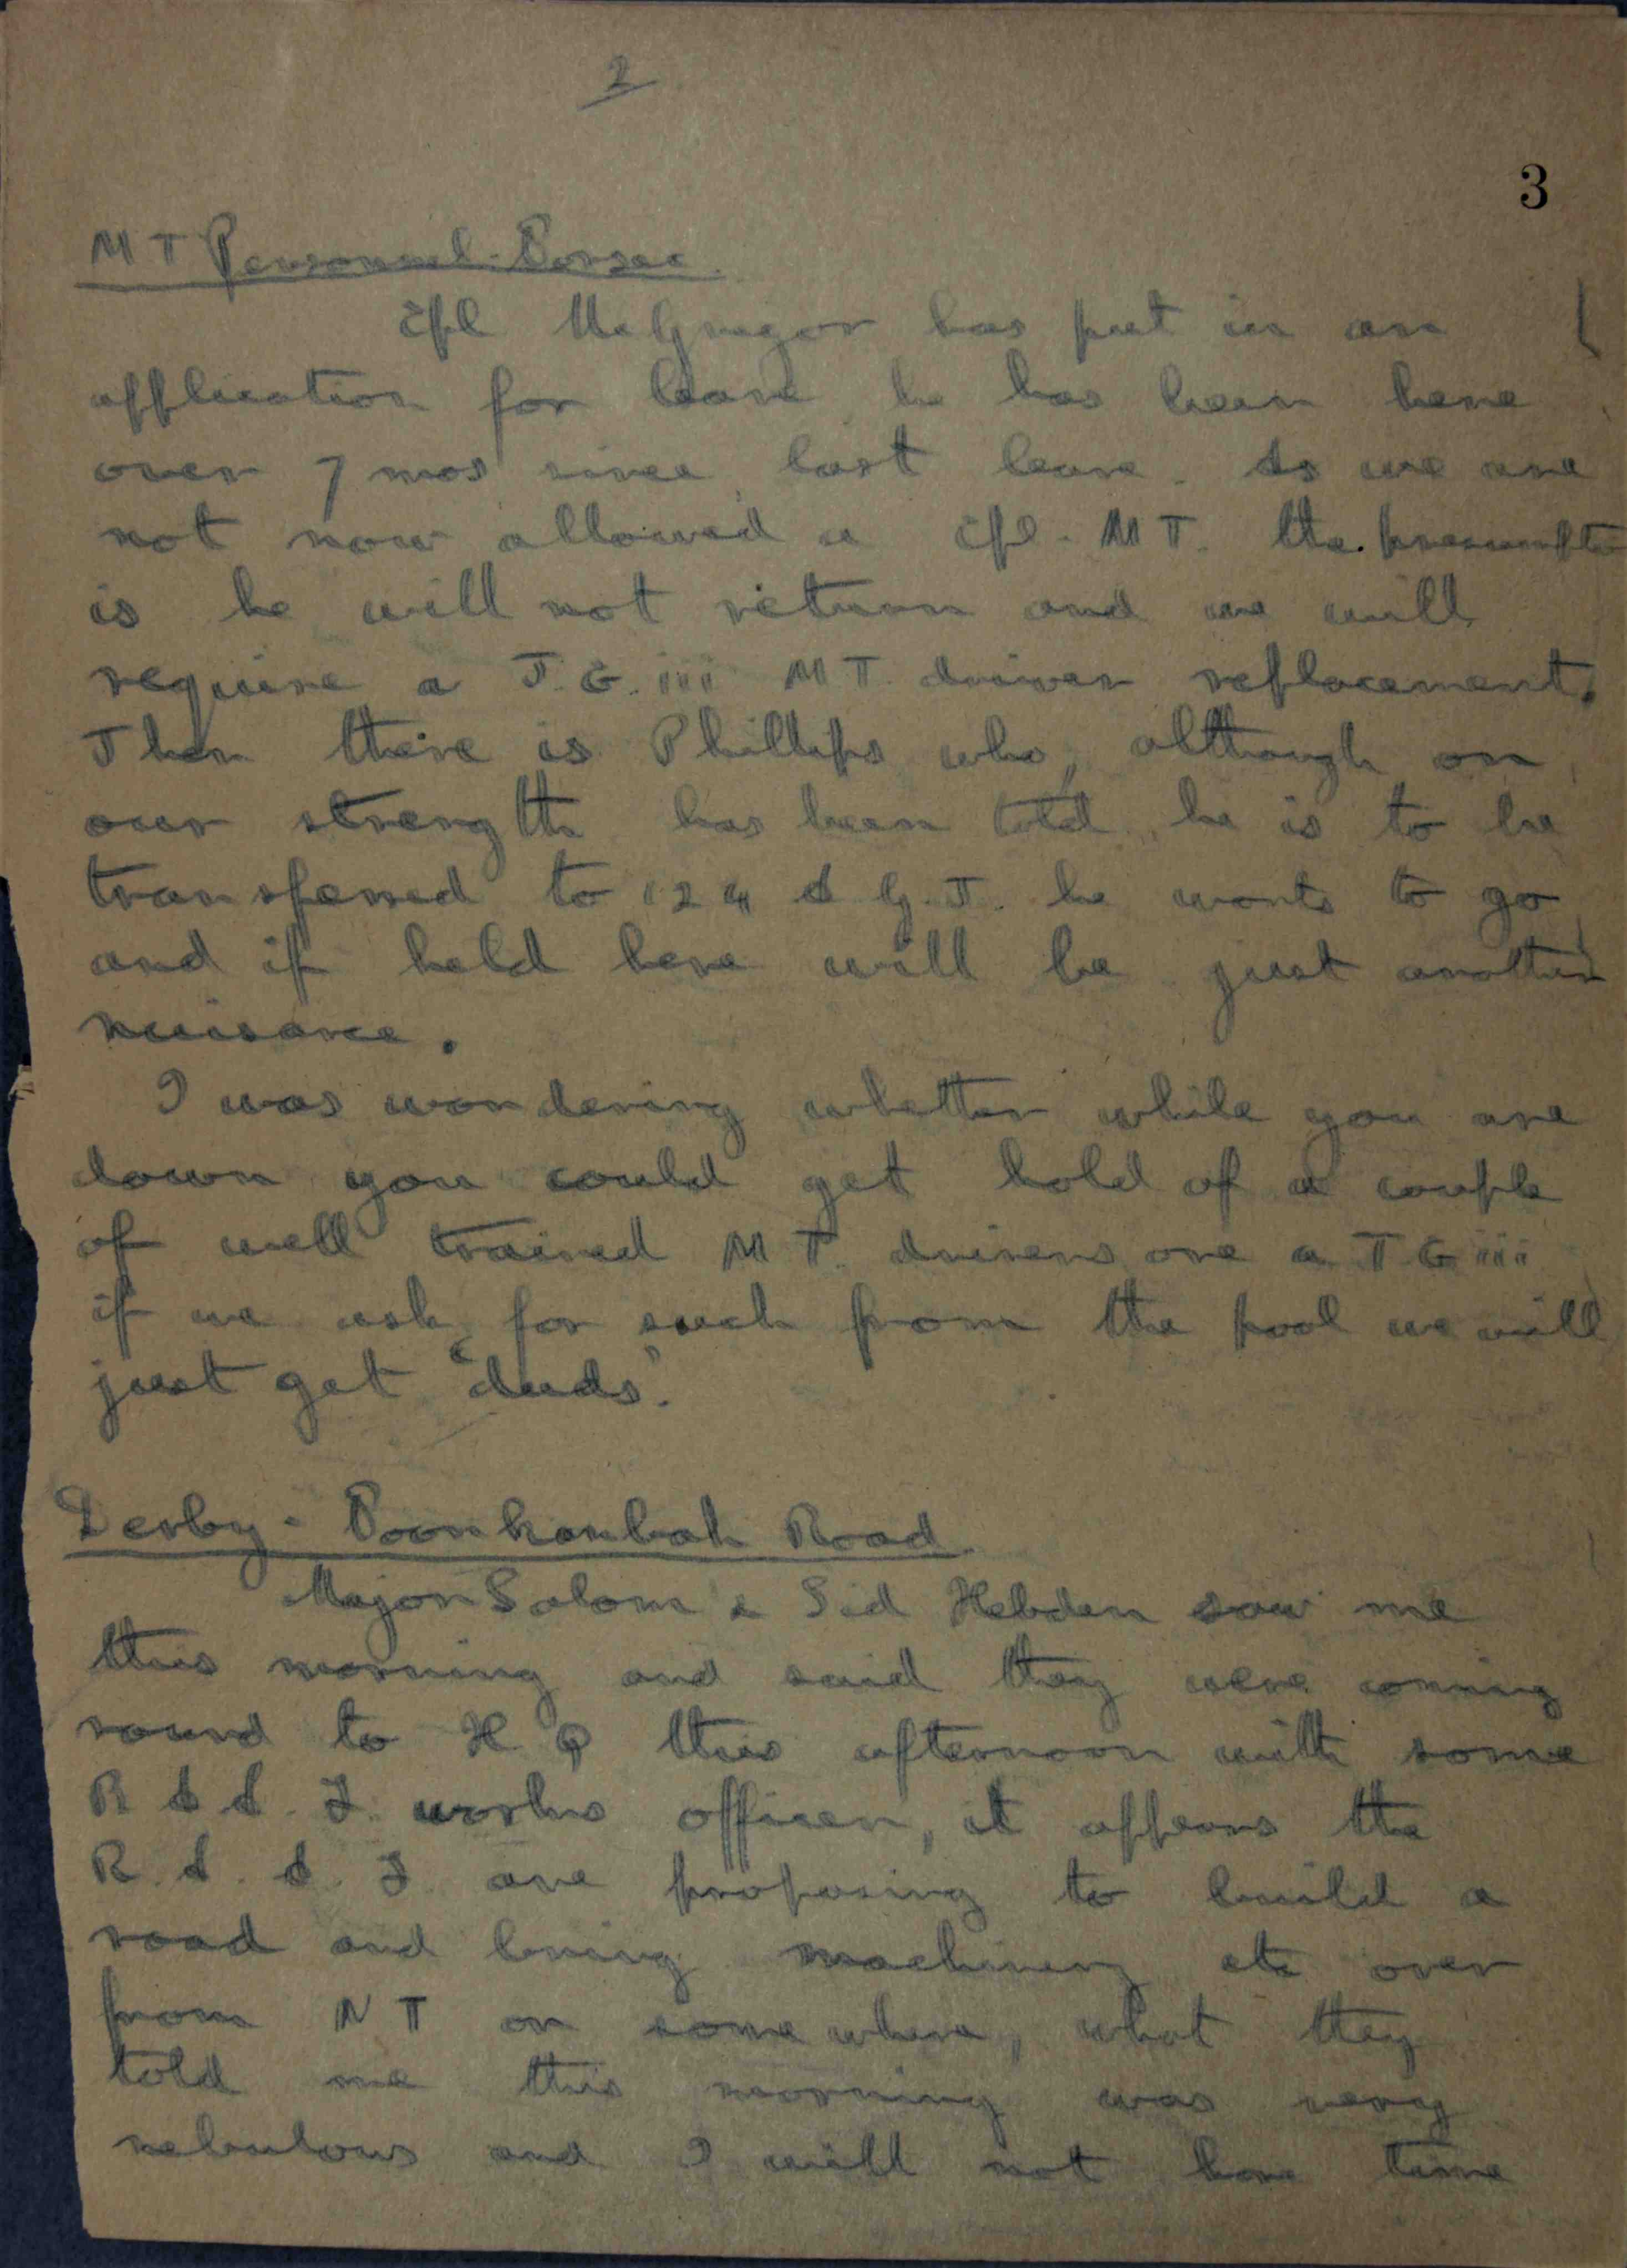 2
3
MT Personnel - Borsec.
Cpl McGregor has put in an
application for leave he has been here
over 7 mos since last leave. As we are
not now allowed a Cpl. MT. the
is he will not return and we will
require a T.G. iii MT. driver replacement.
Then there is Phillips who, although on
our strength has been told he is to be
transferred to 124 A G.T. he wants to go
and if held here will be just another
nuisance.
I was wondering whether while you are
down you could get hold of a couple
of well trained MT. drivers one a T.G iii
if we ask for such from the pool we will
just get "duds".
Derby - Noonkanbah Road
Major Salom & Sid Hebden saw me
this morning and said they were coming
round to H Q this afternoon with some
R A A. F. works officer, it appears the
R. A. A. F. are proposing to build a
road and bring machinery etc over
from NT or some where, what they
told me this morning was very
nebulous and I will not have time